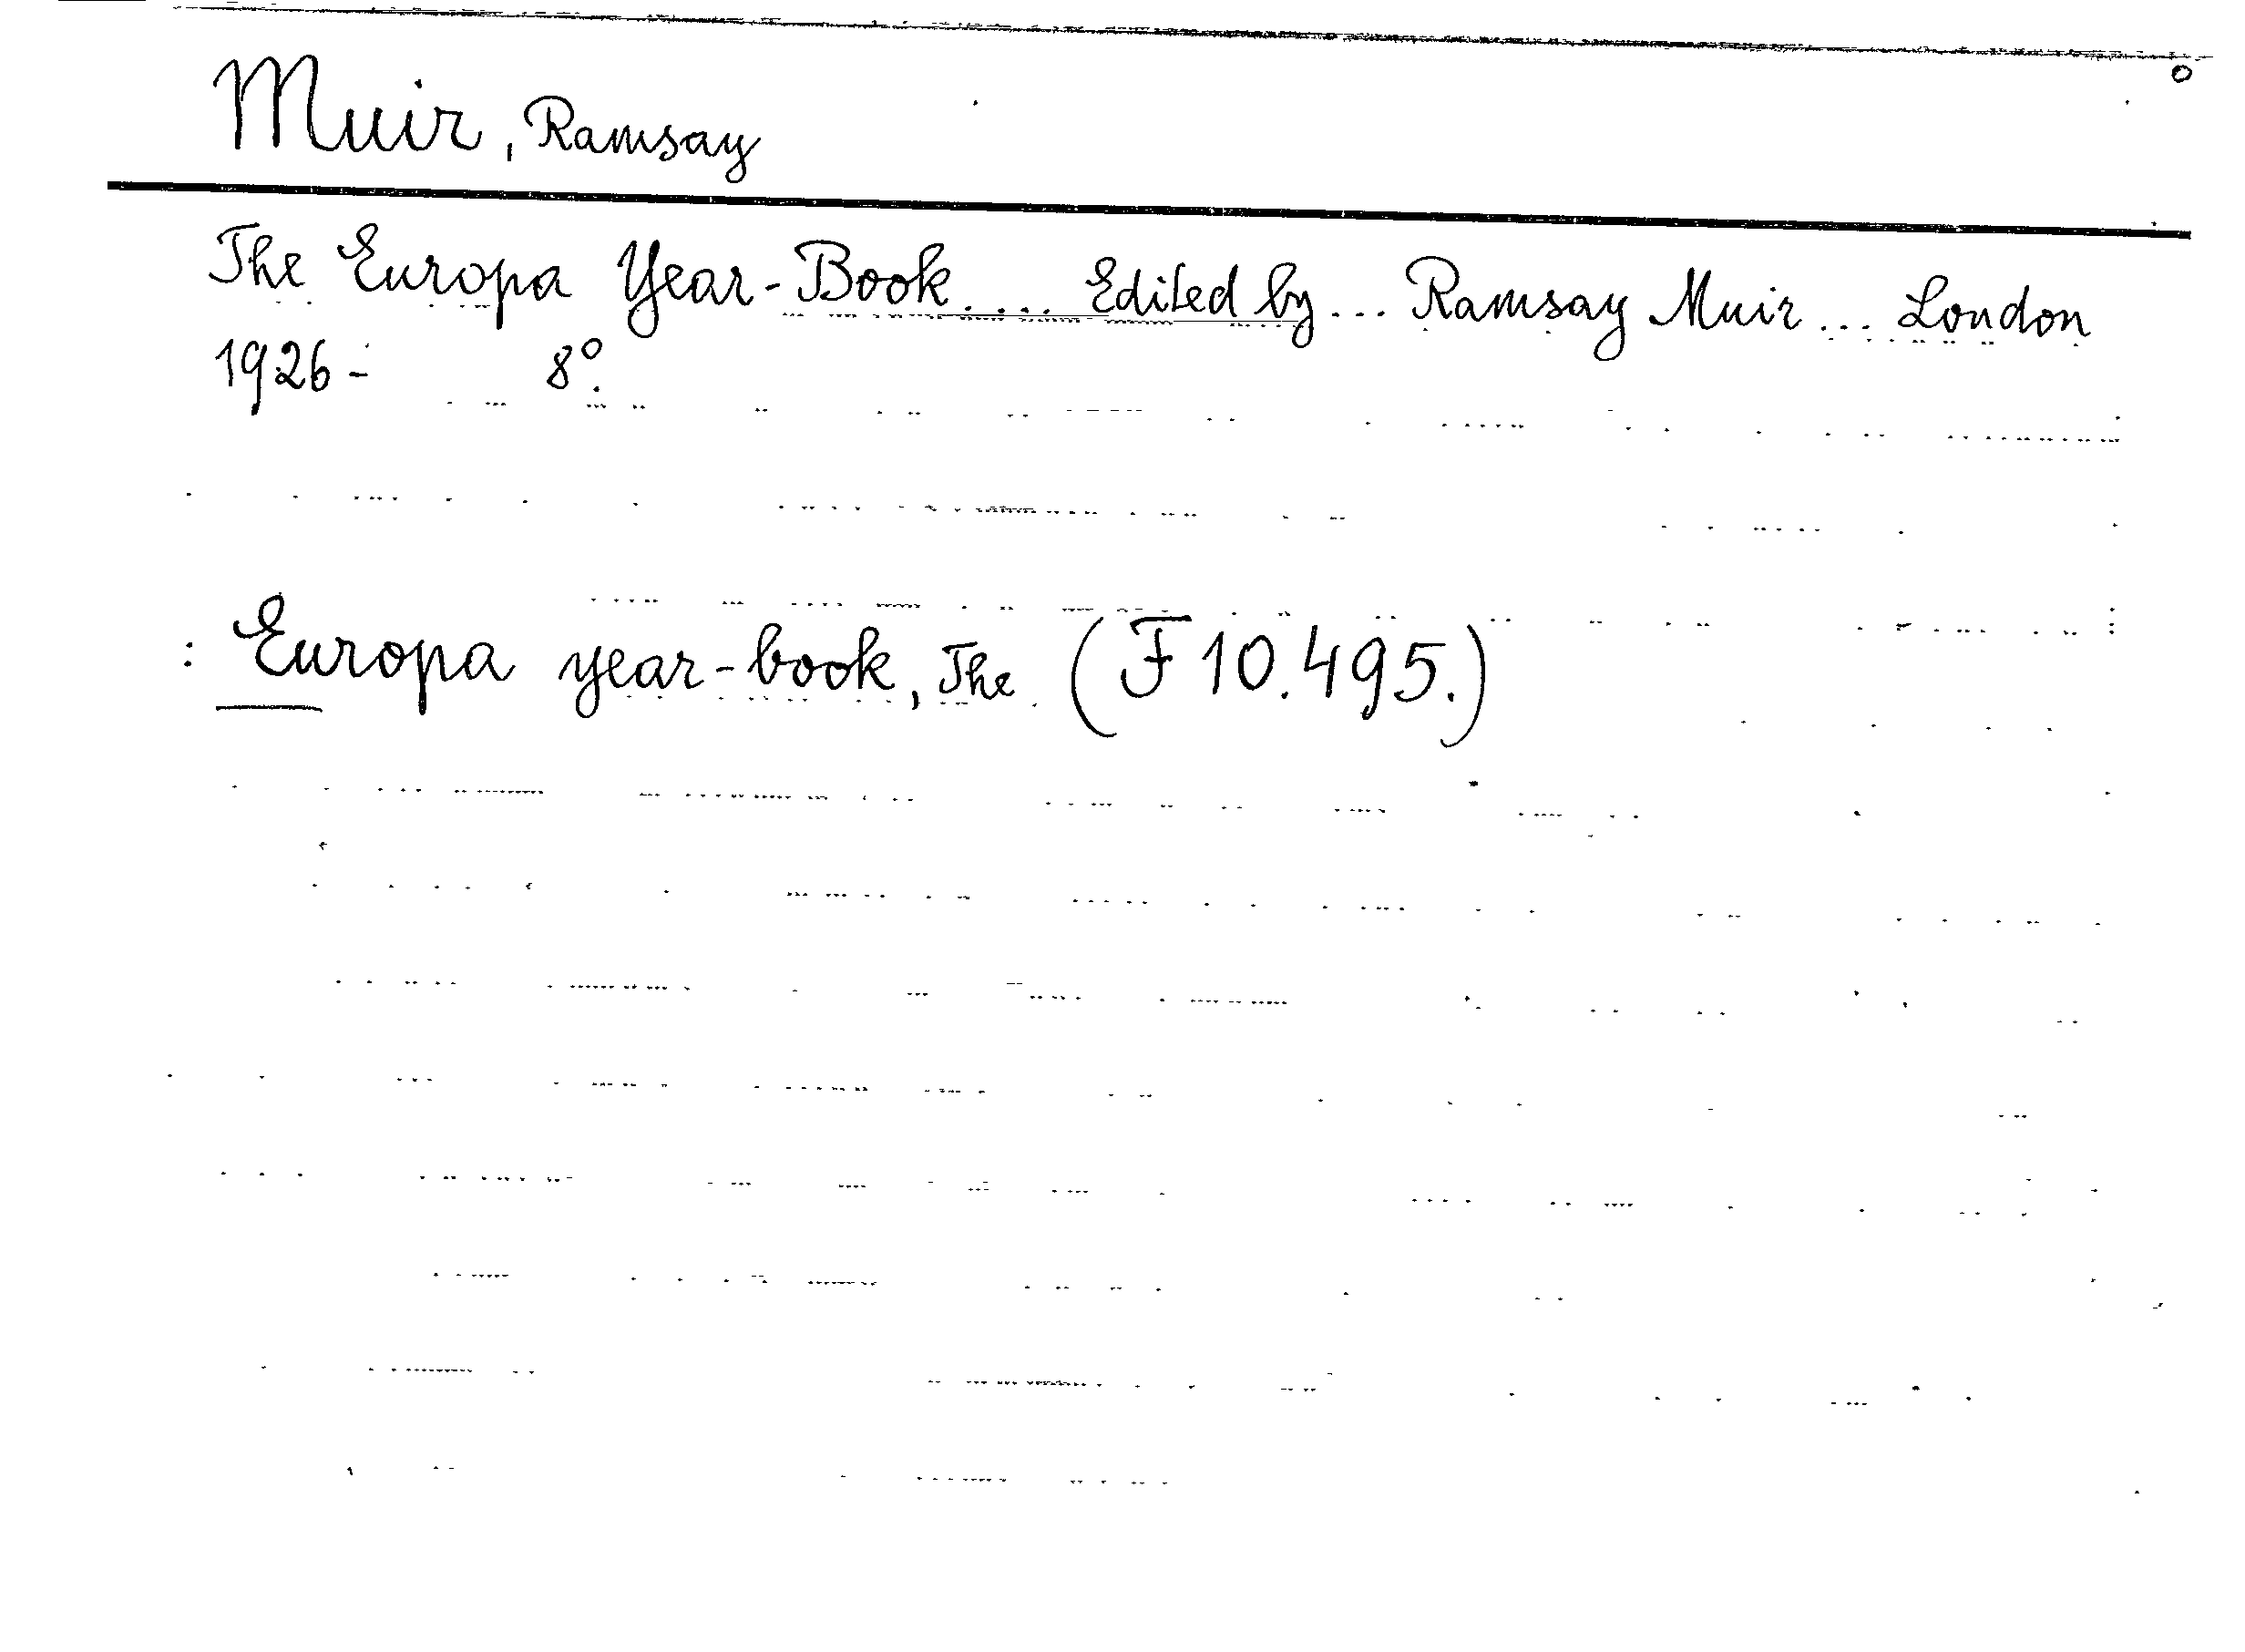 Muir, Ramsay
The Europa Year-Book.... Edited by... Ramsay Muir... London
1926- 8°.
: Europa year-book, The (F 10.495.)